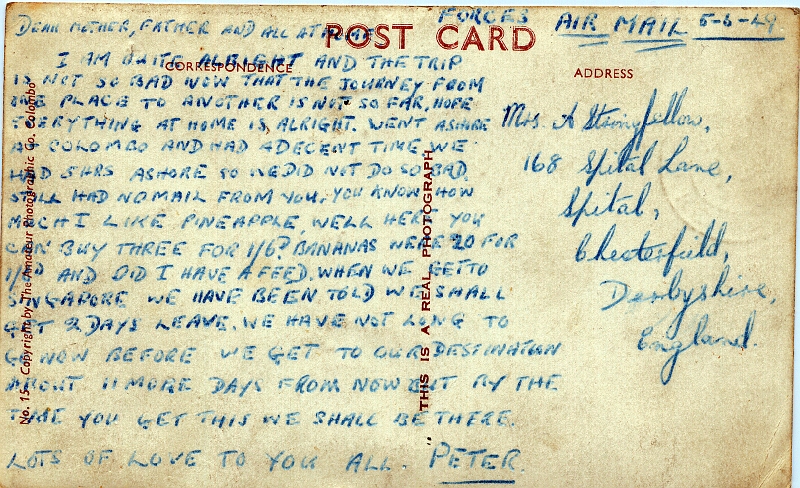 FORCES AIR MAIL 5-6-49
DEAR MOTHER, FATHER AND ALL AT HOME
POST CARD
CORRESPONDENCE
ADDRESS
I AM QUITE ALRIGHT AND THE TRIP
IS NOT SO BAD NOW THAT THE JOURNEY FROM
ONE PLACE TO ANOTHER IS NOT SO FAR. HOPE
EVERYTHING AT HOME IS ALRIGHT. WENT ASHORE
AT COLOMBO AND HAD A DECENT TIME. WE
HAD 5 HRS ASHORE SO WE DID NOT DO SO BAD.
STILL HAD NO MAIL FROM YOU. YOU KNOW HOW
MUCH I LIKE PINEAPPLE, WELL HERE YOU
CAN BUY THREE FOR 1/6? BANANAS WERE 20 FOR
AND DID I HAVE A FEED. WHEN WE GET TO
SINGAPORE WE HAVE BEEN TOLD WE SHALL
GET 2 DAYS LEAVE. WE HAVE NOT LONG TO
GO NOW BEFORE WE GET TO OUR DESTINATION
ABOUT 11 MORE DAYS FROM NOW BUT BY THE
TIME YOU GET THIS WE SHALL BE THERE.
LOTS OF LOVE TO YOU ALL. PETER.
Mrs. A Stringfellow,
168 Spital Lane,
Spital,
Chesterfield,
Derbyshire,
England.
No. 15. Copyright by The Amateur Photographic Co. Colombo
THIS IS A REAL PHOTOGRAPH